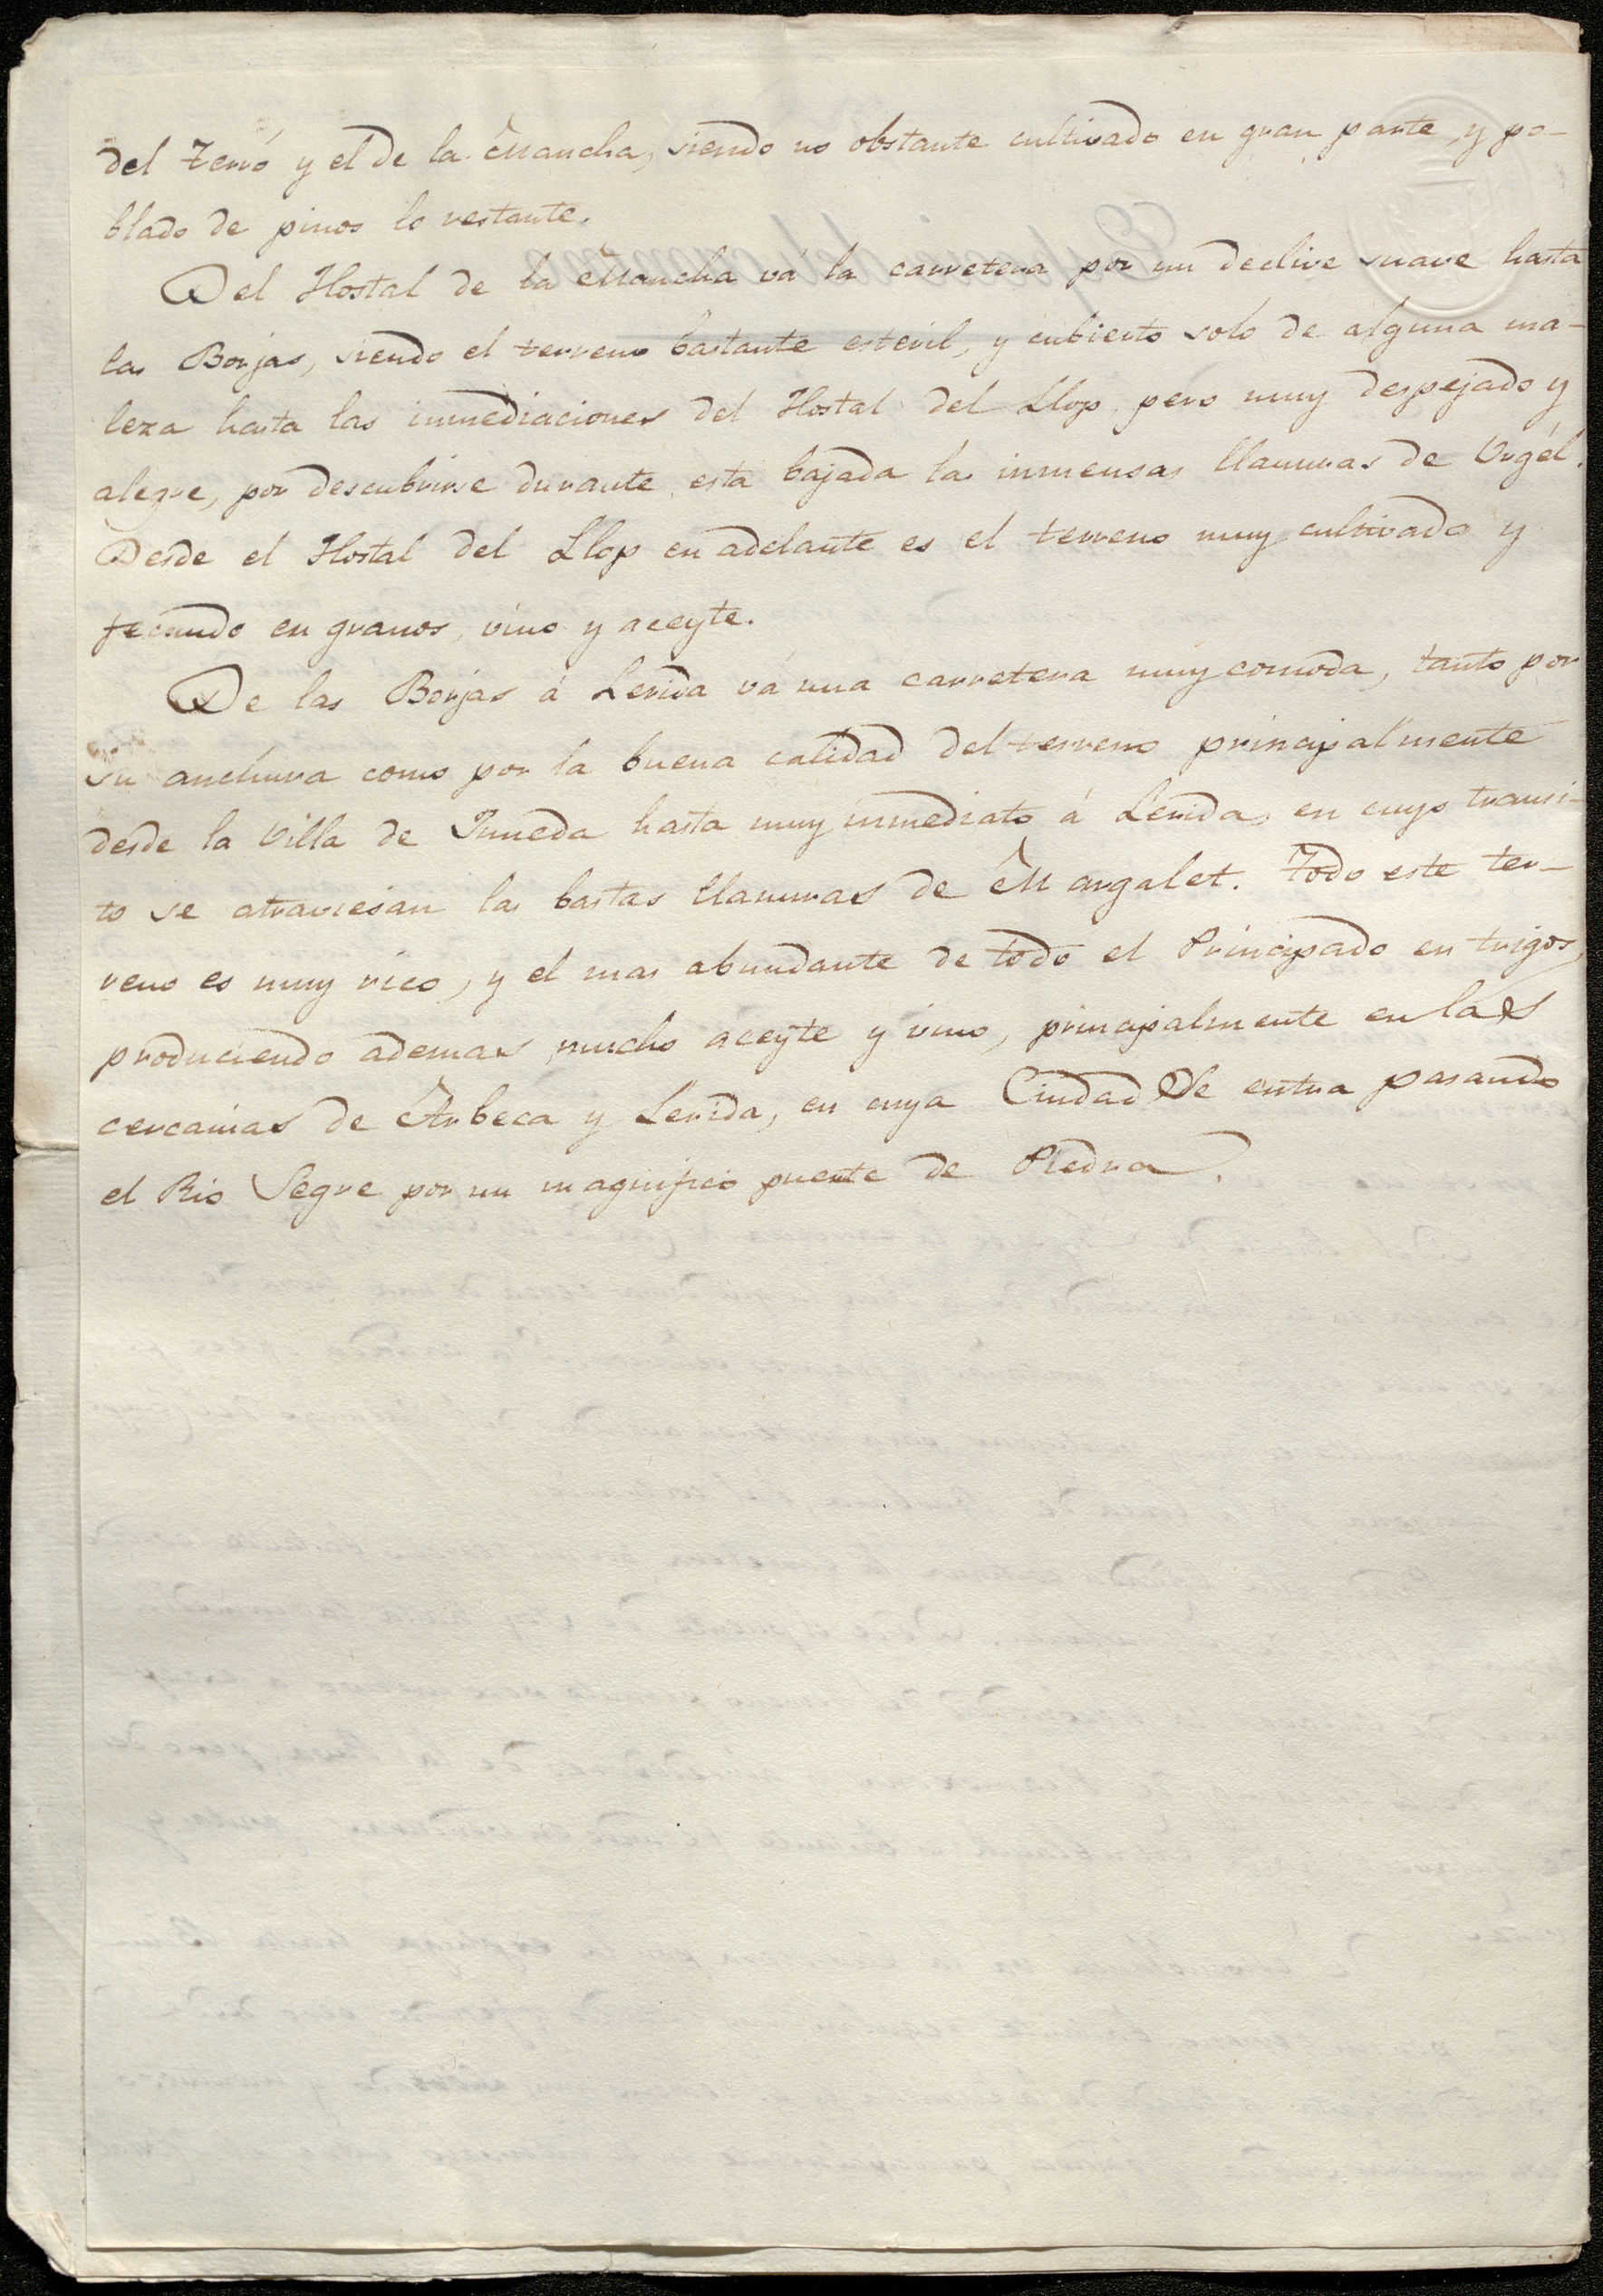 del Terró y el de la Mancha, siendo no obstante cultivado en gran parte, y po-
blado de pinos lo restante.
Del Hostal de la Mancha vá la carretera por un declive suave hasta
las Borjas, siendo el terreno bastante estéril, y cubierto solo de alguna ma-
leza hasta las inmediaciones del Hostal del Llop, pero muy despejado y
alegre, por descubrirse durante esta bajada las inmensas llanuras de Urgél.
Desde el Hostal del Llop en adelante es el terreno muy cultivado y
fecundo en granos, vino y aceyte.
De las Borjas á Lerida vá una carretera muy comoda, tanto por
su anchura como por la buena calidad del terreno principalmente
desde la Villa de Juneda hasta muy inmediato á Lerida, en cuyo transi-
to se atraviesan las bastas llanuras de Margalet. Todo este ter-
reno es muy rico, y el mas abundante de todo el Principado en trigos,
produciendo ademas mucho aceyte y vino, principalmente en las
cercanias de Arbeca y Lerida, en cuya Ciudad Se entra pasando
el Rio Segre por un magnifico puente de Piedra.